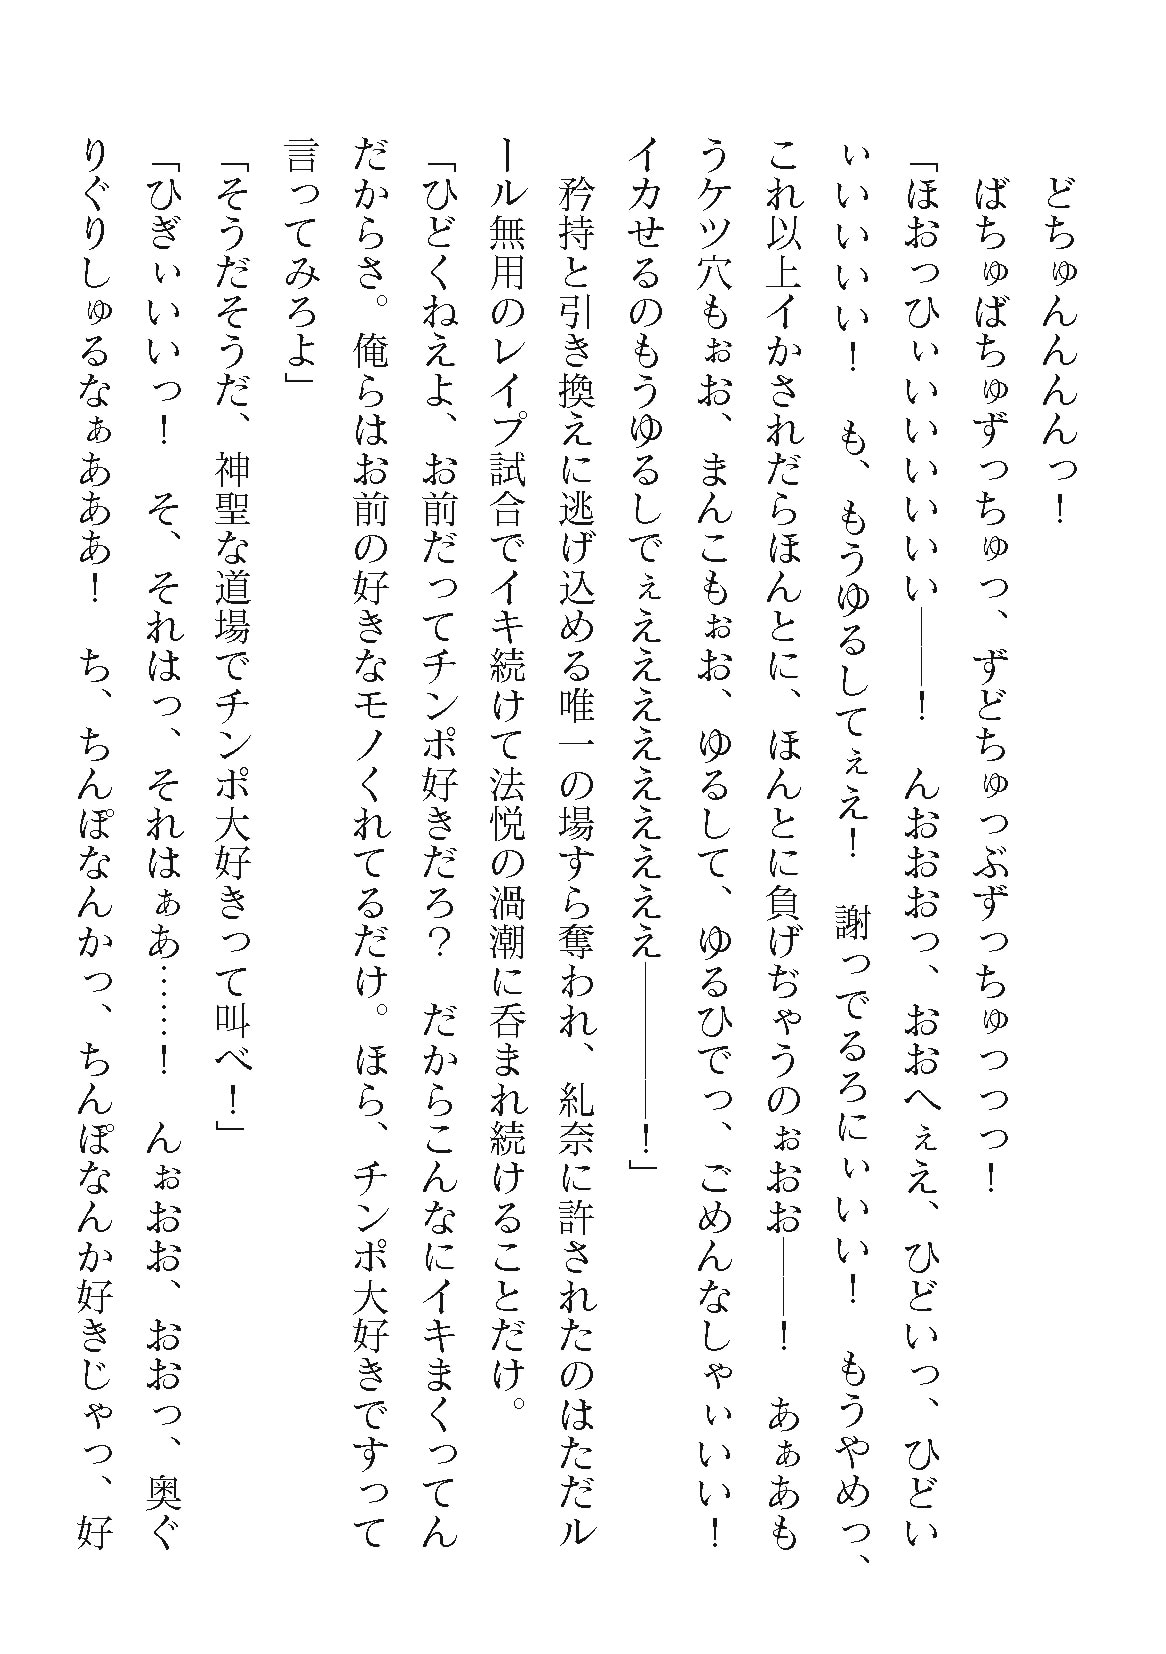 どちゅんんんんっ！
ばちゅばちゅずっちゅっ、ずどちゅっぶずっちゅっっっ！
「ほおっひぃいいいいいい――！　んおおおっ、おおへぇえ、ひどいっ、ひどい
ぃいいいい！　も、もうゆるしてぇえ！　謝っでるろにぃいい！　もうやめっ、
これ以上イかされだらほんとに、ほんとに負げぢゃうのぉおお――！　あぁあも
うケツ穴もぉお、まんこもぉお、ゆるして、ゆるひでっ、ごめんなしゃぃいい！
イカせるのもうゆるしでぇえええええええええ――――！」
矜持と引き換えに逃げ込める唯一の場すら奪われ、糺奈に許されたのはただル
ール無用のレイプ試合でイキ続けて法悦の渦潮に呑まれ続けることだけ。
「ひどくねえよ、お前だってチンポ好きだろ？　だからこんなにイキまくってん
だからさ。俺らはお前の好きなモノくれてるだけ。ほら、チンポ大好きですって
言ってみろよ」
「そうだそうだ、神聖な道場でチンポ大好きって叫べ！」
「ひぎぃいいっ！　そ、それはっ、それはぁあ……！　んぉおお、おおっ、奥ぐ
りぐりしゅるなぁあああ！　ち、ちんぽなんかっ、ちんぽなんか好きじゃっ、好